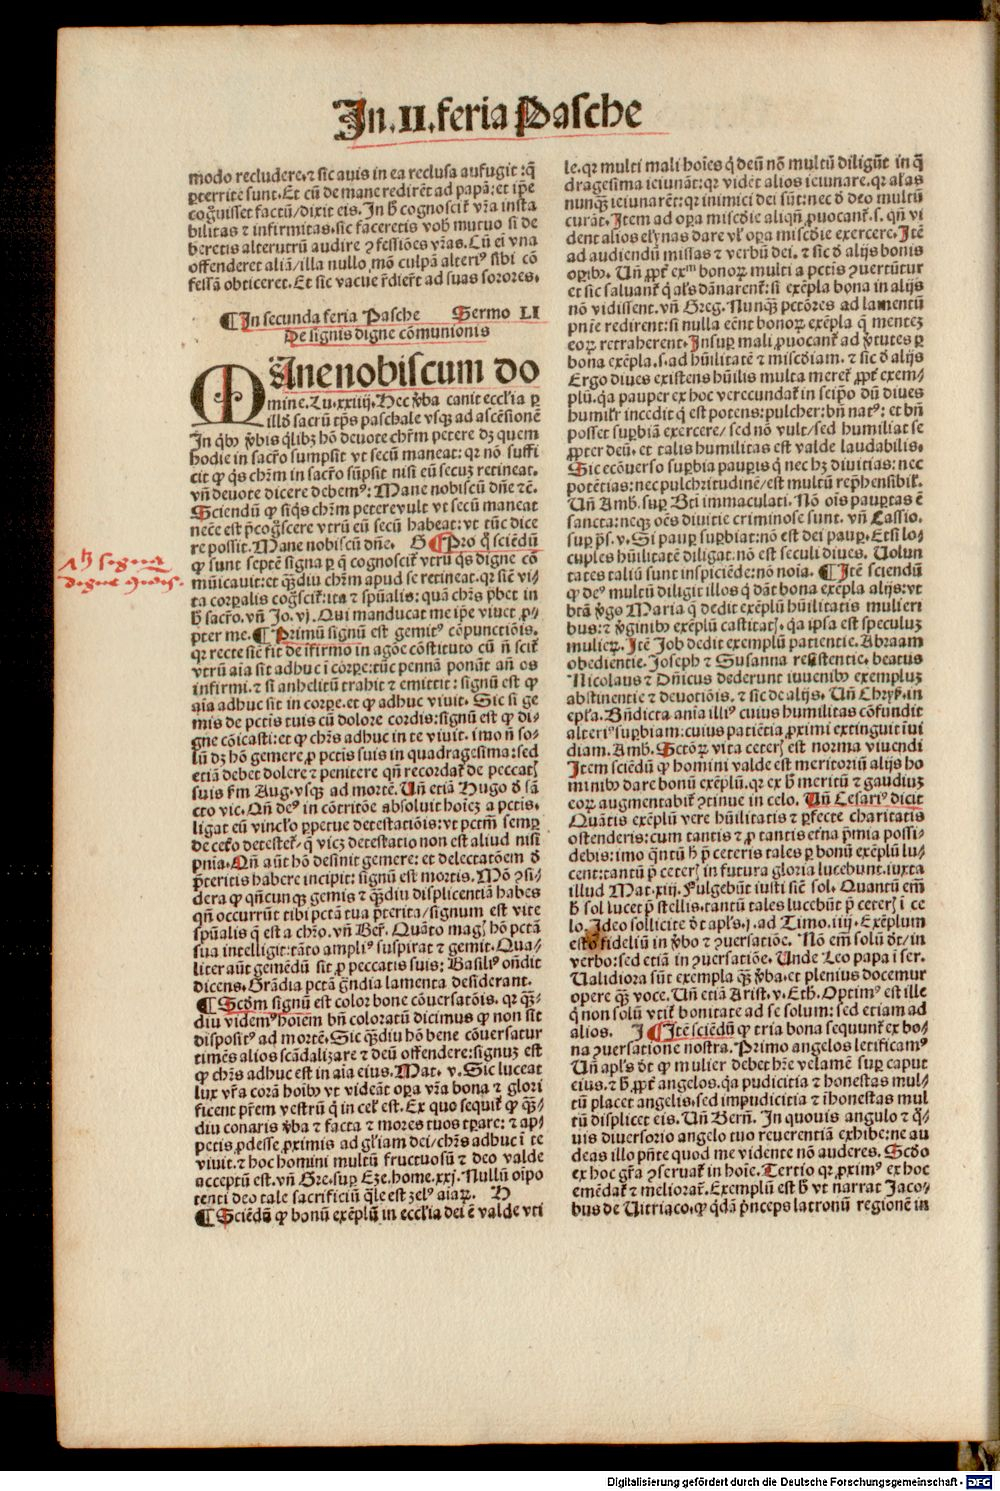 In.II.feria Pasche
modo recludere.⁊ sic auis in ea reclusa aufugit:q̄
ꝑterrite sunt.Et cū de mane redirēt ad papā:et ip̄e
cogͫuisset factū/dixit eis.In h̄ cognoscit᷑ vr̄a insta
bilitas ⁊ infirmitas.sic faceretis voƀ mutuo si de
beretis alterutrū audire ꝯfessiōes vr̄as.Cū em̄ vna
offenderet aliā/illa nullo mō culpā alteriꝰ sibi cō
fessā obticeret.Et sic vacue r̄dier̄t ad suas sorores.
¶In secunda feria Pasche Sermo LI
De signis digne cōmunionis
MAne nobiscum do
mine.Lu.xxiiij.Hec v̄ba canit eccl'ia ꝑ
illd' sacrū tp̄s paschale vsqꝫ ad ascēsionē
In qͥbꝰ v̄bis qͥlibꝫ hō deuote chr̄m petere dꝫ quem
hodie in sacr̄o sumpsit vt secū maneat: qꝛ nō suffi
cit ꝙ qͥs chr̄m in sacr̄o sūpsit nisi eū secuꝫ retineat.
vn̄ deuote dicere debemꝰ: Mane nobiscū dn̄e ⁊c̄.
Sciendū ꝙ siqͥs chr̄m petere vult vt secū maneat
necē est p̄cogͫscere vtrū eū secū habeat: vt tūc dice
re possit. Mane nobiscū dn̄e. G ¶Pro q̄ sciēdū
ꝙ sunt septē signa ꝑ q̄ cognoscit᷑ vtrū qͥs digne cō
mūicauit: et qͣꝫdiu chr̄m apud se retineat.qꝛ sic̄ vi-
ta corꝑalis cogͫscit᷑:ita ⁊ sp̄ualis: quā chr̄s p̄bet in
h̄ sacr̄o.vn̄ Jo.vj.Qui manducat me ip̄e viuet ꝓ-
pter me.¶Primū signū est gemitꝰ cōpunctiōis.
qꝛ recte sic̄ fit de īfirmo in agōe cōstituto cū n̄ scit᷑
vtrū aīa sit adhuc ī corꝑe:tūc pennā ponūt an̄ os
infirmi.⁊ si anhelitū trahit ⁊ emittit: signū est ꝙ
aīa adhuc sit in corꝑe.et ꝙ adhuc viuit. Sic si ge
mis de pctīs tuis cū dolore cordis: signū est ꝙ di-
gne cōicasti: et ꝙ chr̄s adhuc in te viuit. imo n̄ so-
lū dꝫ hō gemere ꝓ pctīs suis in quadragesima: sed
etiā debet dolere ⁊ penitere qn̄ recordat᷑ de peccatꝭ
suis fm̄ Aug.vsqꝫ ad mortē. Un̄ etiā Hugo d̄ sā
cto vic. Qn̄ deꝰ in cōtritōe absoluit hoīeꝫ a pctīs.
ligat eū vincl'o ꝑpetue detestatiōis: vt pctm̄ semꝑ
de cet'o detestet᷑.q̄ viceꝫ detestatio non est aliud nisi
pn̄ia. Qn̄ aūt hō desinit gemere: et delectatōem d̄
p̄teritis habere incipit: signū est mortis. Mō ꝯsi-
dera ꝙ qn̄cunqꝫ gemis ⁊ qͣꝫdiu displicentiā habes
qn̄ occurrūt tibi pctā tua p̄terita/signum est vite
sp̄ualis q̄ est a chr̄o. vn̄ Ber̄. Quāto magꝭ hō pctā
sua intelligit: tāto ampliꝰ suspirat ⁊ gemit. Qua-
liter aūt gemēdū sit ꝓ peccatis suis: Basiliꝰ on̄dit
dicens. Grādia pctā grādia lamenta desiderant.
¶Scd̄m signū est color bone cōuersatōis. qꝛ qͣꝫ-
diu videmꝰ hoīem bn̄ coloratū dicimus ꝙ non sit
dispositꝰ ad mortē. Sic qͣꝫdiu hō bene cōuersatur
timēs alios scādalizare ⁊ deū offendere: signuꝫ est
ꝙ chr̄s adhuc est in aīa eius. Mat. v. Sic luceat
lux vr̄a corā hoībꝰ vt videāt oꝑa vr̄a bona ⁊ glori
ficent pr̄em vestrū q̄ in cel' est. Ex quo sequit᷑ ꝙ qͣꝫ-
diu conaris v̄ba ⁊ facta ⁊ mores tuos tꝑare: ⁊ ap-
petis ꝓdesse ꝓximis ad gl'iam dei/chr̄s adhuc ī te
viuit. ⁊ hoc homini multū fructuosū ⁊ deo valde
acceptū est. vn̄ Gre. suꝑ Eze. home. xxj. Nullū oīpo
tenti deo tale sacrificiū qͣle est zelꝰ aīaꝝ. H
¶Sciēdū ꝙ bonū exēplū in eccl'ia dei ē valde vti
le.qꝛ multi mali hoīes q̄ deū nō multū diligūt in q̄
dragesima ieiunāt: qꝛ vidēt alios ieiunare.qꝛ al'as
nunqͣꝫ ieiunarēt: qꝛ inimici dei sūt: nec d̄ deo multū
curāt. Item ad oꝑa misc̄die aliqn̄ ꝓuocant᷑.s. qn̄ vi
dent alios el'ynas dare vl' oꝑa misc̄die exercere. Itē
ad audiendū missas ⁊ verbū dei. ⁊ sic d̄ alijs bonis
oꝑibꝰ. Un̄ ꝓpt̄ exᵐ bonoꝝ multi a pctīs ꝯuertūtur
et sic saluant᷑ q̄ al's dānarent᷑: si exēpla bona in alijs
nō vidissent. vn̄ Greg. Nunqͣꝫ pctōres ad lamentū
pnīe redirent: si nulla eēnt bonoꝝ exēpla q̄ menteꝫ
eoꝝ retraherent. Insuꝑ mali ꝓuocant᷑ ad v̄tutes ꝑ
bona exēpla.s.ad hūilitatē ⁊ misc̄diam. ⁊ sic d̄ alijs
Ergo diues existens hūilis multa meret᷑ ꝓpt̄ exem-
plū.qͣ pauper ex hoc verecundat᷑ in seip̄o dū diues
humilr̄ incedit q̄ est potens: pulcher: bn̄ natꝰ: et bn̄
posset suꝑbiā exercere/sed nō vult/sed humiliat se
ꝓpter deū. et talis humilitas est valde laudabilis.
Sic ecōuerso suꝑbia pauꝑis q̄ nec hꝫ diuitias: nec
potētias: nec pulchritudinē/est multū rep̄hensibil'.
Un̄ Amb. suꝑ Btī immaculati. Nō oīs pauꝑtas ē
sancta: neqꝫ oēs diuitie criminose sunt. vn̄ Cassio.
suꝑ ps̄. v. Si pauꝑ suꝑbiat: nō est dei pauꝑ. Etsi lo-
cuples hūilitatē diligat: nō est seculi diues. Uolun
tates taliū sunt inspiciēde: nō noīa. ¶Itē sciendū
ꝙ deꝰ multū diligit illos q̄ dāt bona exēpla alijs: vt
btā v̄go Maria q̄ dedit exēplū hūilitatis mulieri
bus: ⁊ v̄ginibꝰ exēplū castitatꝭ. qͣ ipsa est speculuꝫ
mulieꝝ. Itē Job dedit exemplū patientie. Abraam
obedientie. Joseph ⁊ Susanna resistentie. beatus
Nicolaus ⁊ Dn̄icus dederunt iuuenibꝰ exempluꝫ
abstinentie ⁊ deuotiōis. ⁊ sic de alijs. Un̄ Chryß. in
epl'a. Bn̄dicta anīa illiꝰ cuius humilitas cōfundit
alteriꝰ suꝑbiam: cuius patiētia ꝓximi extinguit īui
diam. Amb. Sctōꝝ vita ceterꝭ est norma viuendi
Item sciēdū ꝙ homini valde est meritoriū alijs ho
minibꝰ dare bonū exēplū. qꝛ ex h̄ meritū ⁊ gaudiuꝫ
eoꝝ augmentabit᷑ ꝯtinue in celo. Un̄ Cesariꝰ dicit
Quātis exēplū vere hūilitatis ⁊ ꝑfecte charitatis
ostenderis: cum tantis ⁊ ꝓ tantis et̄na p̄mia possi-
debis: imo qͣntū h̄ p̄ ceteris tales ꝑ bonū exēplū lu-
cent: tantū p̄ ceterꝭ in futura gloria lucebunt. iuxta
illud Mat. xiij. Fulgebūt iusti sic̄ sol. Quantū em̄
h̄ sol lucet p̄ stellis. tantū tales lucebūt p̄ ceterꝭ ī ce
lo. Ideo sollicite d̄t apl's. j. ad Timo. iiij. Exēplum
esto fideliū in v̄bo ⁊ ꝯuersatiōe. Nō em̄ solū d̄t/in
verbo: sed etiā in ꝯuersatiōe. Unde Leo papa i ser.
Ualidiora sūt exempla qͣꝫ v̄ba. et plenius docemur
opere qͣꝫ voce. Un̄ etiā Arist. v. Eth. Optimꝰ est ille
q̄ non solū vtit᷑ bonitate ad se solum: sed etiam ad
alios. J ¶Itē sciēdū ꝙ tria bona sequunt᷑ ex bo-
na ꝯuersatione nostra. Primo angelos letificamꝰ
Un̄ apl's d̄t ꝙ mulier debet hr̄e velamē suꝑ caput
eius. ⁊ h̄ ꝓpt̄ angelos. qͣ pudicitia ⁊ honestas mul-
tū placet angelis. sed impudicitia ⁊ īhonestas mul
tū displicet eis. Un̄ Bern̄. In quouis angulo ⁊ q̄-
uis diuersorio angelo tuo reuerentiā exhibe: ne au
deas illo pn̄te quod me vidente nō auderes. Scd̄o
ex hoc gr̄a ꝯseruat᷑ in hoīe. Tertio qꝛ ꝓximꝰ ex hoc
emēdat᷑ ⁊ meliorat᷑. Exemplū est h̄ vt narrat Jaco-
bus de Uitriaco. ꝙ qͥdā p̄nceps latronū regionē in
Digitalisierung gefördert durch die Deutsche Forschungsgemeinschaft - DFG